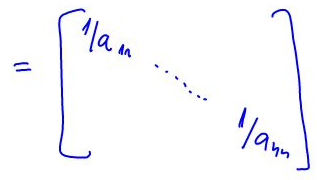 = [ 1/a₁₁ ⋱ 1/aₙₙ ]